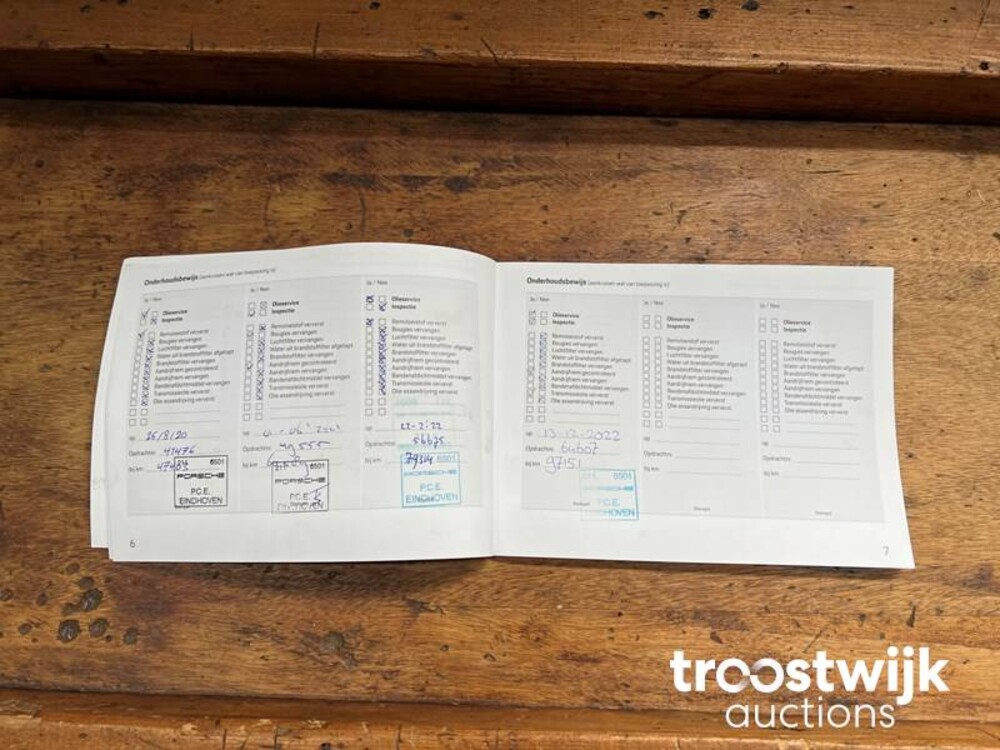 Onderhoudsbewijs (aankruisen wat van toepassing is)
Ja / Nee
Olieservice
Inspectie
Remvloeistof ververst
Bougies vervangen
Luchtfilter vervangen
Water uit brandstoffilter afgetapt
Brandstoffilter vervangen
Aandrijfriem gecontroleerd
Aandrijfriem vervangen
Bandenafdichtmiddel vervangen
Transmissieolie ververst
Olie asaandrijving ververst
op 25/8/20
Opdrachtnr.
bij km
6501
PORSCHE
P.C.E.
EINDHOVEN
Ja / Nee
Olieservice
Inspectie
Remvloeistof ververst
Bougies vervangen
Luchtfilter vervangen
Water uit brandstoffilter afgetapt
Brandstoffilter vervangen
Aandrijfriem gecontroleerd
Aandrijfriem vervangen
Bandenafdichtmiddel vervangen
Transmissieolie ververst
Olie asaandrijving ververst
op
Opdrachtnr.
bij km
6501
PORSCHE
P.C.E.
EINDHOVEN
Ja / Nee
Olieservice
Inspectie
Remvloeistof ververst
Bougies vervangen
Luchtfilter vervangen
Water uit brandstoffilter afgetapt
Brandstoffilter vervangen
Aandrijfriem gecontroleerd
Aandrijfriem vervangen
Bandenafdichtmiddel vervangen
Transmissieolie ververst
Olie asaandrijving ververst
op 22-2-22
Opdrachtnr.
bij km 79314
6501
PORSCHE
P.C.E.
EINDHOVEN
6
Onderhoudsbewijs (aankruisen wat van toepassing is)
Ja / Nee
Olieservice
Inspectie
Remvloeistof ververst
Bougies vervangen
Luchtfilter vervangen
Water uit brandstoffilter afgetapt
Brandstoffilter vervangen
Aandrijfriem gecontroleerd
Aandrijfriem vervangen
Bandenafdichtmiddel vervangen
Transmissieolie ververst
Olie asaandrijving ververst
op 13-12-2022
Opdrachtnr. 64607
bij km 97151
6501
PORSCHE
P.C.E.
Stempel
Ja / Nee
Olieservice
Inspectie
Remvloeistof ververst
Bougies vervangen
Luchtfilter vervangen
Water uit brandstoffilter afgetapt
Brandstoffilter vervangen
Aandrijfriem gecontroleerd
Aandrijfriem vervangen
Bandenafdichtmiddel vervangen
Transmissieolie ververst
Olie asaandrijving ververst
op
Opdrachtnr.
bij km
Stempel
Ja / Nee
Olieservice
Inspectie
Remvloeistof ververst
Bougies vervangen
Luchtfilter vervangen
Water uit brandstoffilter afgetapt
Brandstoffilter vervangen
Aandrijfriem gecontroleerd
Aandrijfriem vervangen
Bandenafdichtmiddel vervangen
Transmissieolie ververst
Olie asaandrijving ververst
op
Opdrachtnr.
bij km
Stempel
7
troostwijk
auctions